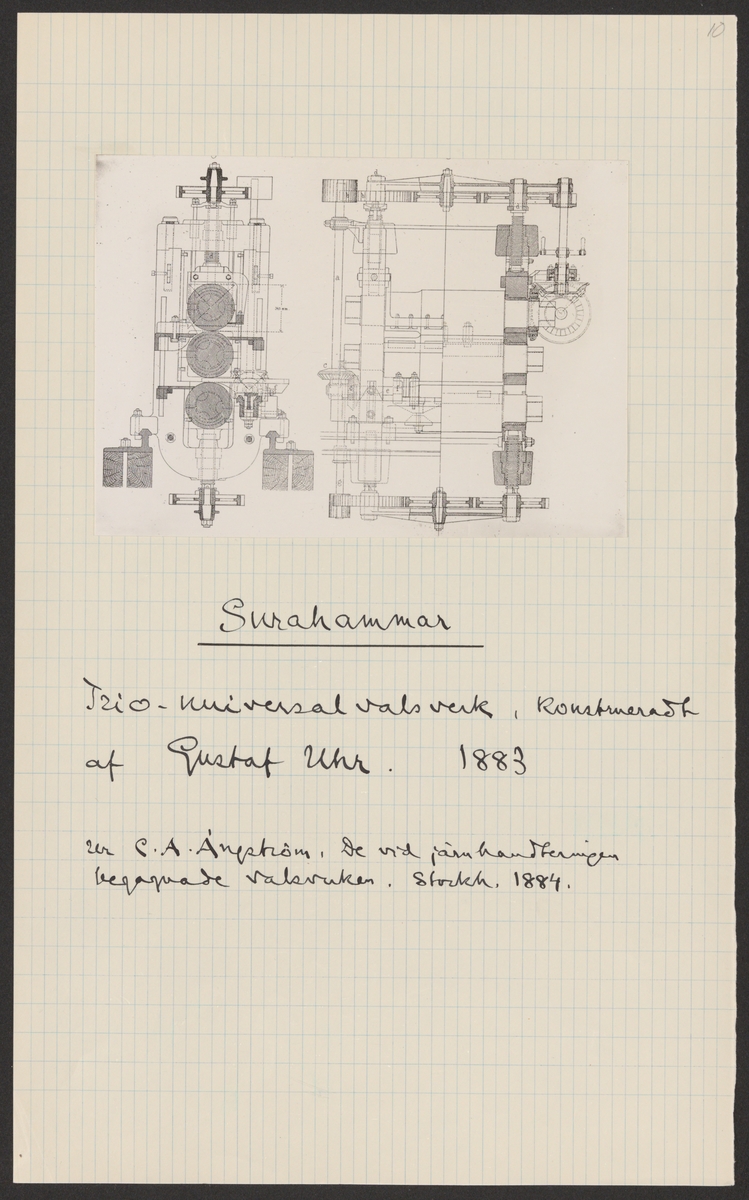 10
Surahammar
Trio-universalvalsverk, konstrueradt
af Gustaf Uhr. 1883
ur C. A. Ångström, De vid järnhandteringen
begagnade valsverken. Stockh. 1884.